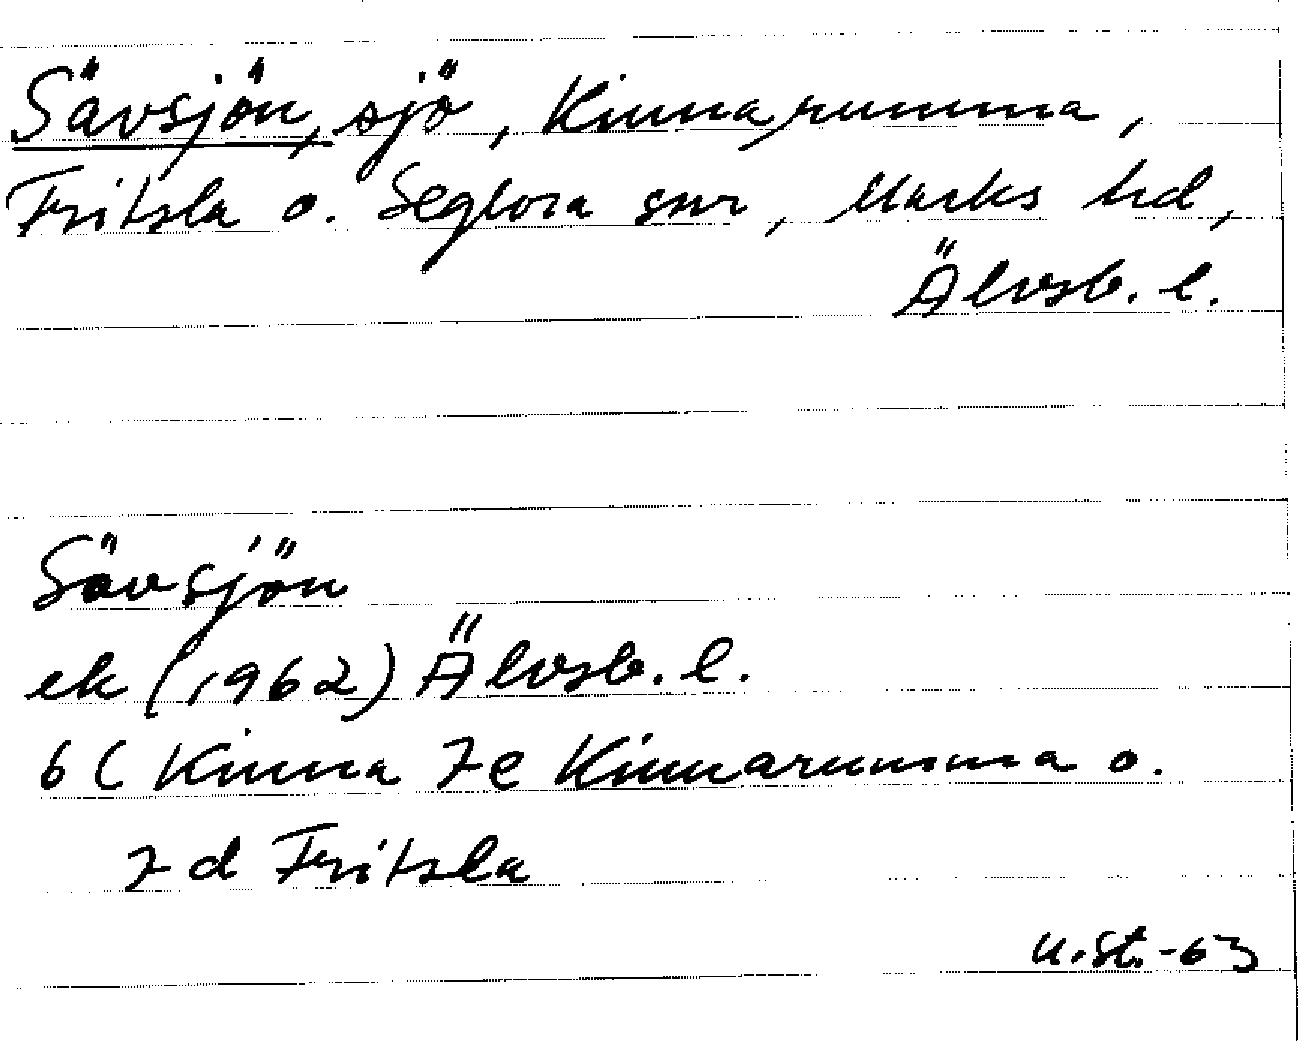 Sävsjön, sjö, Kinnarumma,
Fritsla o. Seglora snr, Marks hd,
Älvsb. l.
Sävsjön
ek (1962) Älvsb. l.
6 C Kinna 7 e Kinnarumma o.
7 d Fritsla
U. St. -63